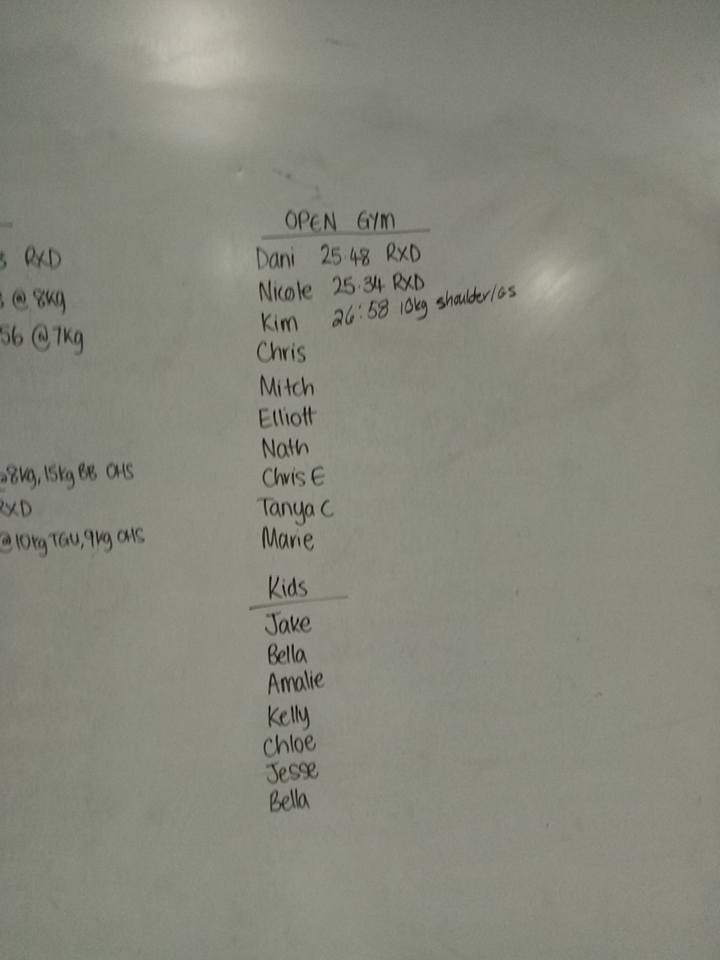 OPEN GYM
RXD
Dani 25.48 RXD
@ 8kg
Nicole 25.34 RXD
56 @ 7kg
Kim 26:58 10kg shoulder/GS
Chris
Mitch
Elliott
Nath
8kg, 15kg BB OHS
Chris E
RXD
Tanya C
@10kg TGU, 9kg OHS
Marie
Kids
Jake
Bella
Amalie
Kelly
Chloe
Jesse
Bella